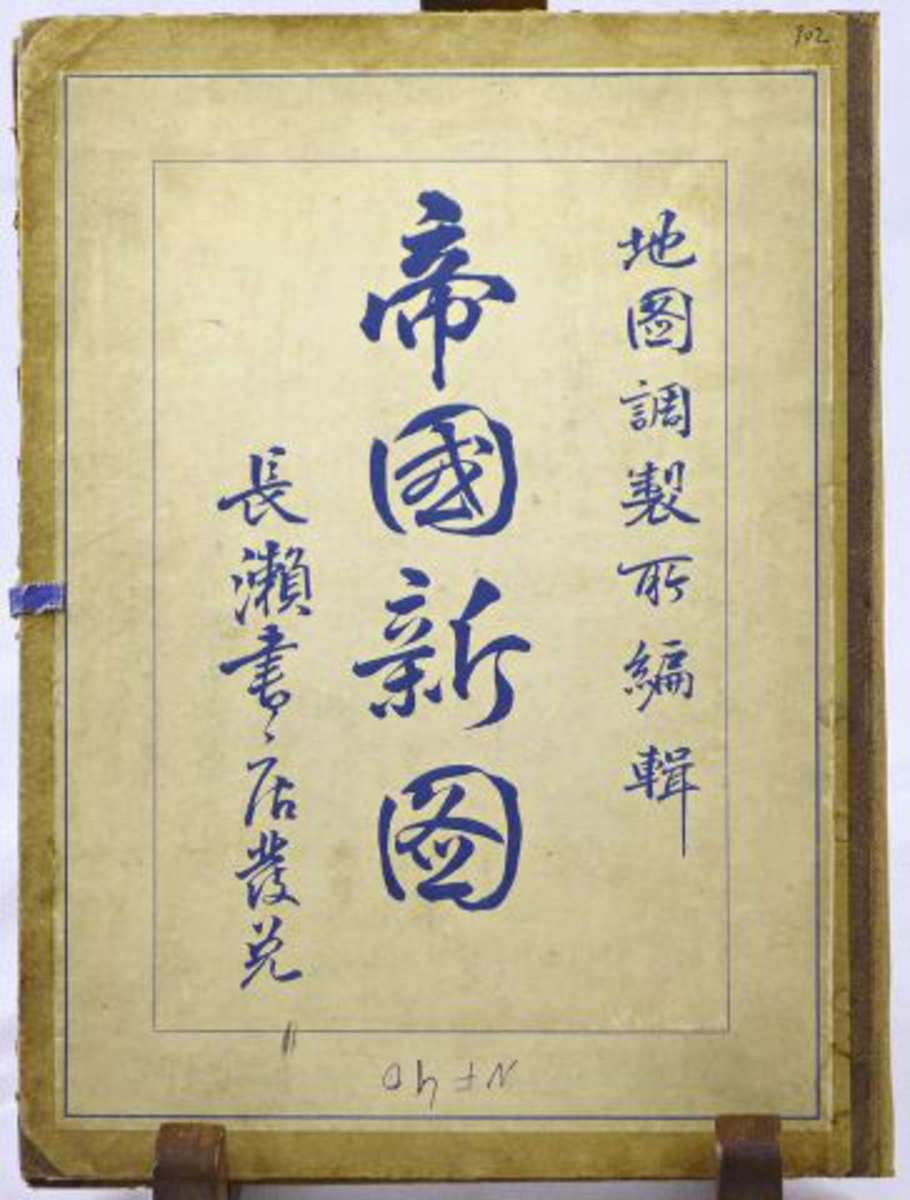 902
地圖調製所編輯
帝國新圖
長瀬書店發兌
NF 40